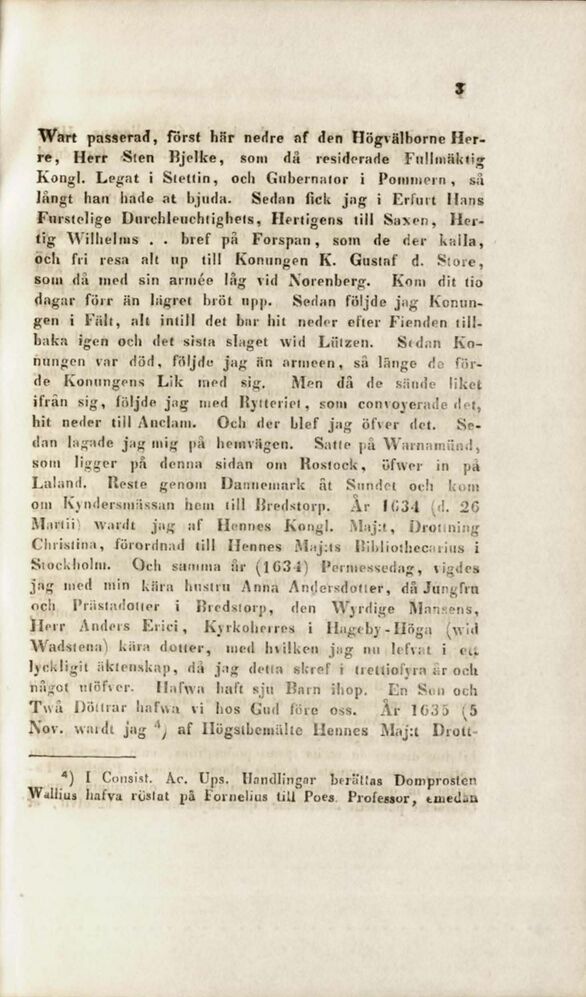 3
Wart passerad, först här nedre af den Högvälborne Her-
re, Herr Sten Bjelke, som då residerade Fullmäktig
Kongl. Legat i Stettin, och Gubernator i Pommern, så
långt han hade at bjuda. Sedan fick jag i Erfurt Hans
Furstelige Durchleuchtighets, Hertigens till Saxen, Her-
tig Wilhelms . . bref på Forspan, som de der kalla,
och fri resa alt up till Konungen K. Gustaf d. Store,
som då med sin armée låg vid Norenberg. Kom dit tio
dagar förr än lägret bröt upp. Sedan följde jag Konun-
gen i Fält, alt intill det bar hit neder efter Fienden till-
baka igen och det sista slaget wid Lützen. Sedan Ko-
nungen var död, följde jag än armeen, så länge de för-
de Konungens Lik med sig. Men då de sände liket
ifrån sig, följde jag med Rytteriet, som convoyerade det,
hit neder till Anclam. Och der blef jag öfver det. Se-
dan lagade jag mig på hemvägen. Satte på Warnamünd,
som ligger på denna sidan om Rostock, öfwer in på
Laland. Reste genom Dannemark åt Sundet och kom
om Kyndersmässan hem till Bredstorp. År 1634 (d. 26
Martii) wardt jag af Hennes Kongl. Maj:t, Drottning
Christina, förordnad till Hennes Maj:ts Bibliothecarius i
Stockholm. Och samma år (1634) Permessedag, vigdes
jag med min kära hustru Anna Andersdotter, då Jungfru
och Prästadotter i Bredstorp, den Wyrdige Mansens,
Herr Anders Erici, Kyrkoherres i Hageby-Höga (wid
Wadstena) kära dotter, med hvilken jag nu lefvat i ett
lyckligit äktenskap, då jag detta skref i trettiofyra år och
något utöfver. Hafwa haft sju Barn ihop. En Son och
Twå Döttrar hafwa vi hos Gud före oss. År 1635 (5
Nov. wardt jag 4) af Högstbemälte Hennes Maj:t Drott-
4) I Consist. Ac. Ups. Handlingar berättas Domprosten
Wallius hafva röstat på Fornelius till Poes. Professor, emedan